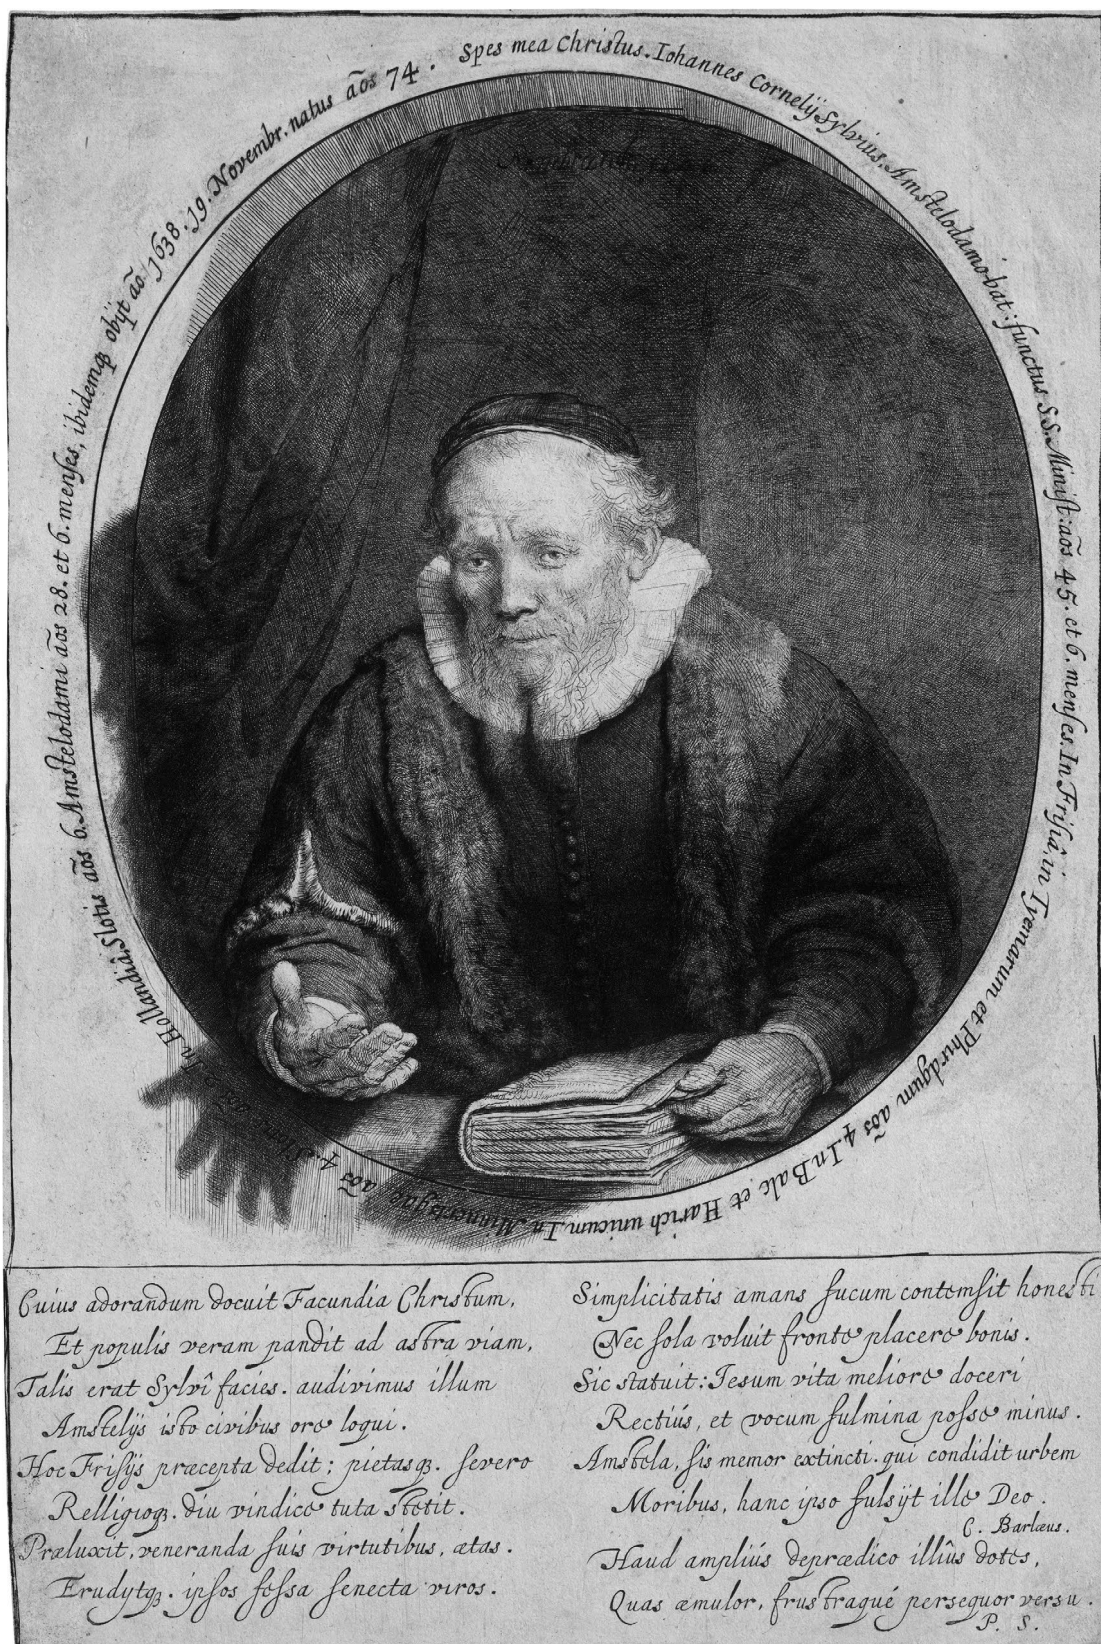 Spes mea Christus. Iohannes Cornelÿ Sylvius, Amstelodamo-bat: functus S.S. Minist: aõs 45. et 6. menses. In Frisiâ, in Tyemarum et Phirdgum aõs 4. In Balc. et Harich unicum. In Minnertsgae aõs 4. In Hollandiâ, Slotis aõs 6. Amstelodami aõs 28. et 6. menses, ibidemqȝ obÿt aõ. 1638. 19. Novembr. natus aõs 74.
Cuius adorandum docuit Facundia Christum,
Et populis veram pandit ad astra viam,
Talis erat Sylvî facies. audivimus illum
Amstelÿs isto civibus ore loqui.
Hoc Frisÿs præcepta dedit; pietasqȝ. severo
Relligioqȝ. diu vindice tuta stetit.
Præluxit, veneranda suis virtutibus, ætas.
Erudytqȝ. ipsos fessa senecta viros.
Simplicitatis amans fucum contemsit honesti
Nec sola voluit fronte placere bonis.
Sic statuit: Iesum vita meliore doceri
Rectiús, et vocum fulmina posse minus.
Amstela, sis memor extincti. qui condidit urbem
Moribus, hanc ipso fulsÿt ille Deo.
C. Barlæus.
Haud ampliús deprædico illîus dotes,
Quas æmulor, frustraqué persequor versu.
P. S.